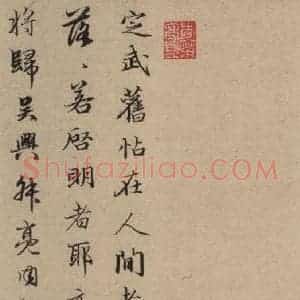 定武舊帖在人間者
落落若啓明者耶
將歸吳興
Shufaziliao.com